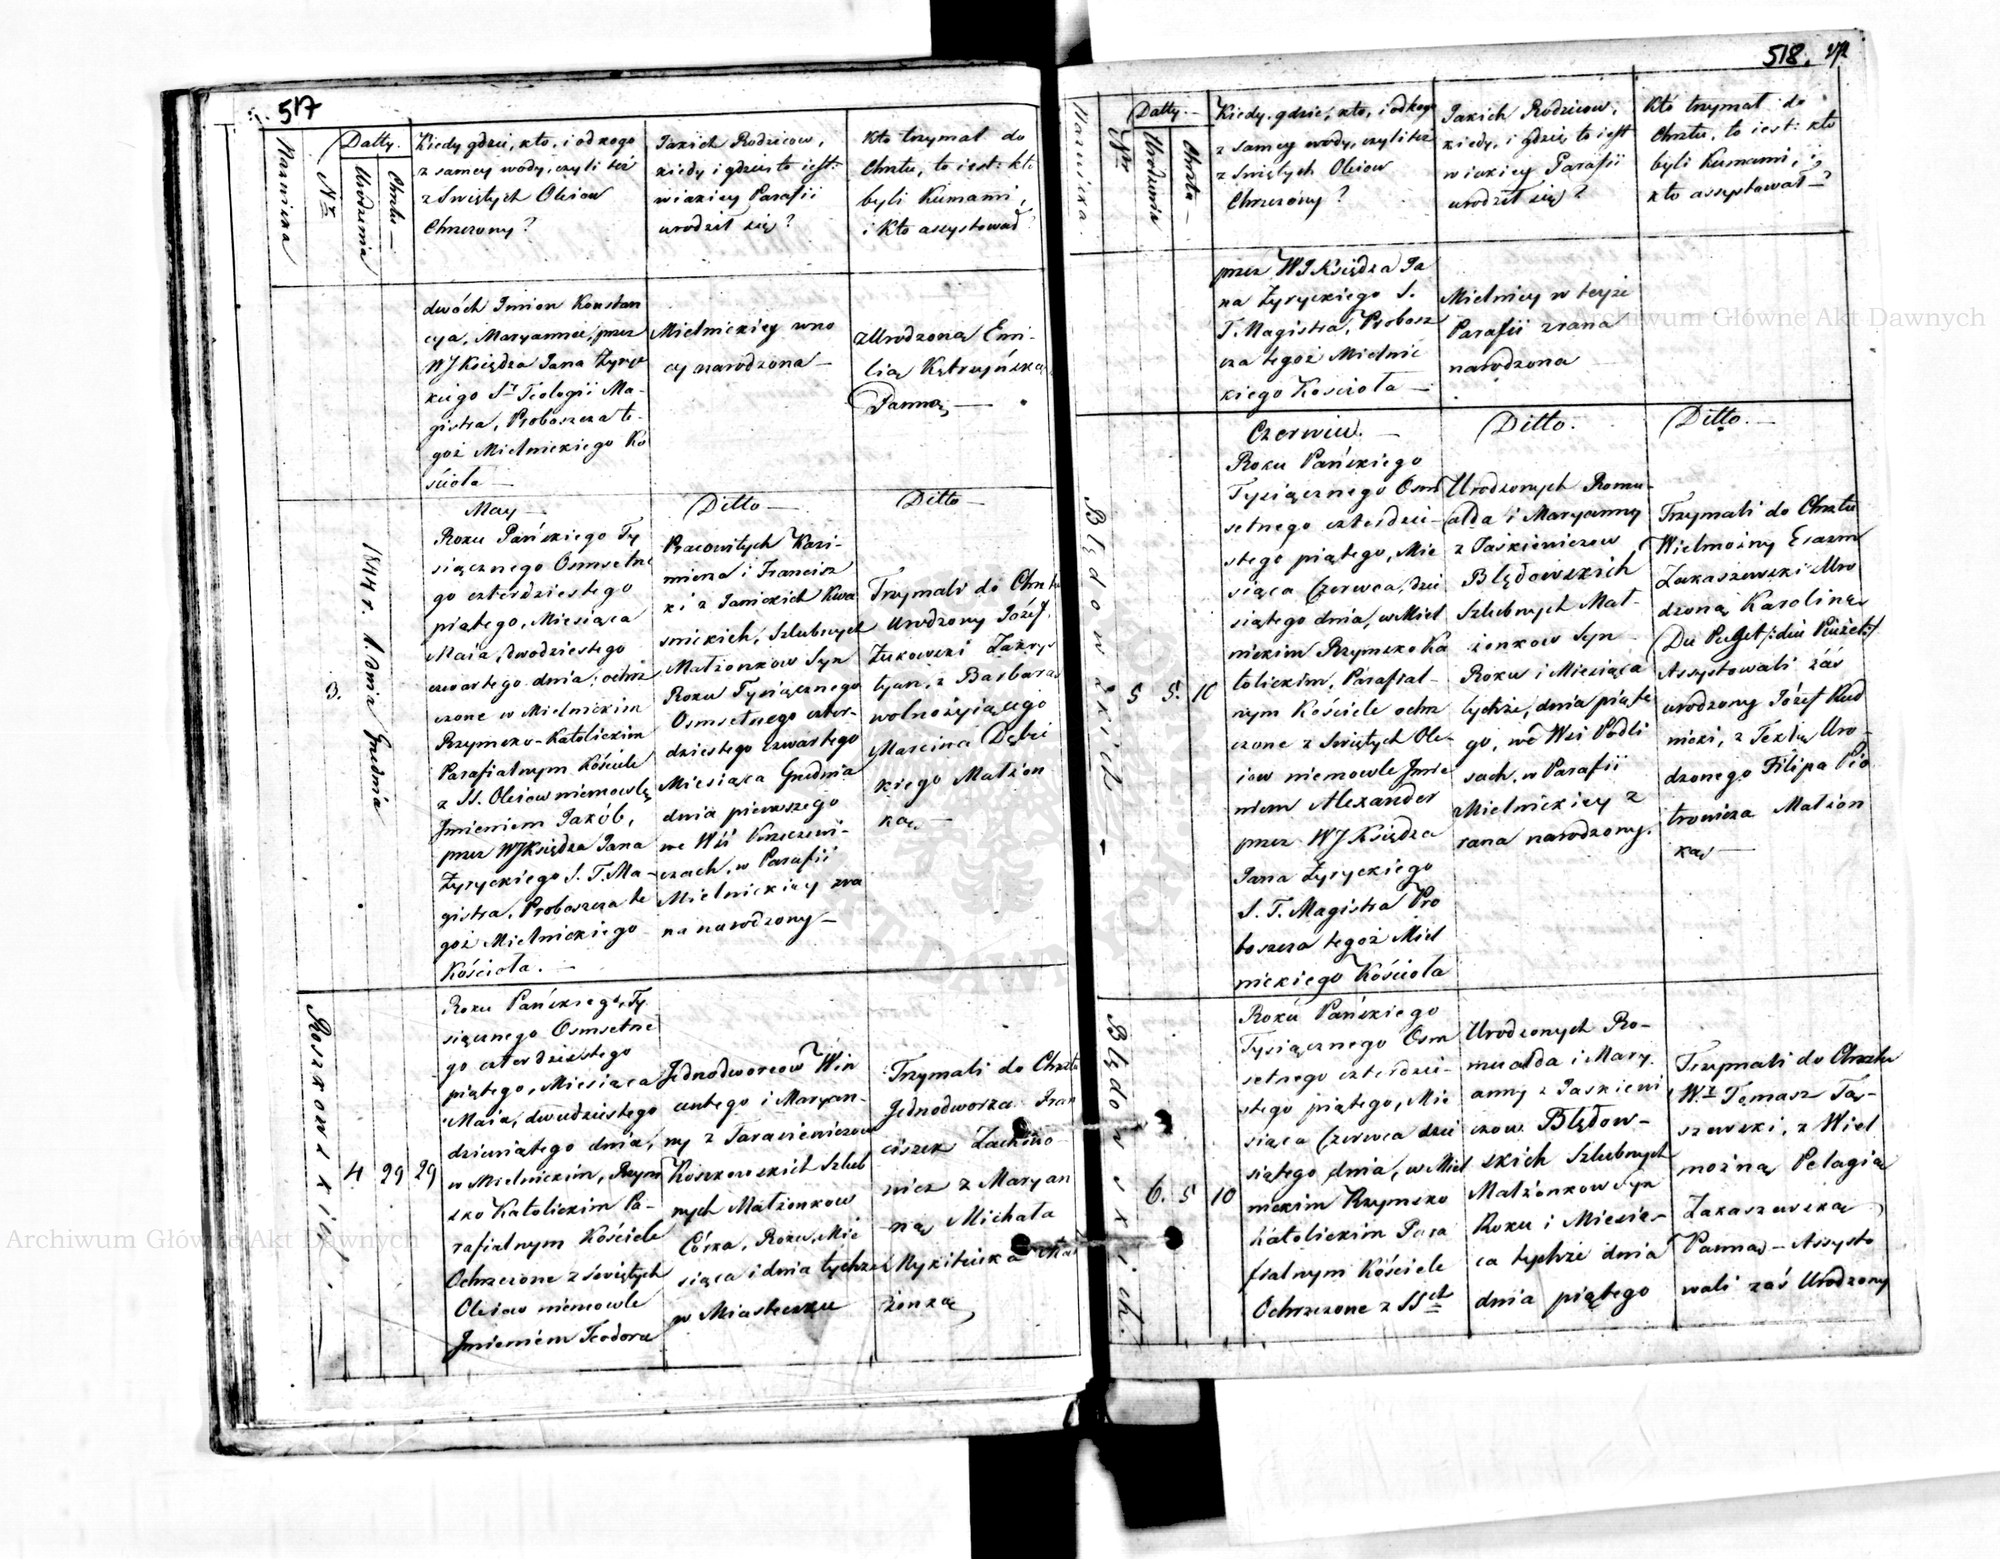 517
Nazwiska
Nr
Datty.
Urodzenia
Chrztu —
Kiedy gdzie, kto, i od kogo
z samey wody, czyli też
z Swiętych Oleiow
Chrzczony?
Jakich Rodzicow,
kiedy i gdzie, to iest:
w iakiey Parafii
urodził się?
Kto trzymał do
Chrztu, to iest: kto
byli Kumami,
i kto assystował?
dwóch Imion Konstan
cya, Maryanna, przez
WJ Księdza Jana Żyryc
kiego St Teologii Ma-
gistra, Proboszcza te-
goż Mielnickiego Ko
ścioła —
Mielnickiey wno
cy narodzona —
z Urodzoną Emi-
lią Kętrzyńską
Panną —
3.
1844 r. 1. dnia Grudnia
May —
Roku Pańskiego Ty
siącznego Osmsetne
go czterdziestego
piątego, Miesiąca
Maia, dwodziestego
czwartego dnia, ochrz
czone w Mielnickim
Rzymsko-Katolickim
Parafialnym Kościele
z SS. Oleiow niemowlę
Imieniem Jakób,
przez WJ Księdza Jana
Żyryckiego S. T. Ma-
gistra, Proboszcza te
goż Mielnickiego
Kościoła. —
Ditto —
Pracowitych Kazi-
mierza i Francisz
ki z Janickich Kwa
śnickich, Szlubnych
Małżonkow Syn
Roku Tysiącznego
Osmsetnego czter-
dziestego czwartego
Miesiąca Grudnia
dnia pierwszego
we Wsi
czach, w Parafii
Mielnickiey zra
na narodzony —
Ditto —
Trzymali do Chrztu
Urodzony Józef
Żukowski Zakrys
tyan, z Barbarą
wolnożyiącego
Marcina Dębic
kiego Małżon
ką —
Roszkowskich.
4
29
29
Roku Pańskiego, Ty
siącznego Osmsetne
go czterdziestego
piątego, Miesiąca
Maia, dwudziestego
dziewiątego dnia,
w Mielnickim, Rzym
sko Katolickim Pa-
rafialnym Kościele
Ochrzczone z Swiętych
Oleiow niemowle
Imieniem Teodora
Jednodworcow Win
centego i Maryan-
ny z Tarasiewiczow
Roszkowskich Szlub
nych Małżonkow
Córka, Roku, Mie
siąca i dnia tychże
w Miasteczku
Trzymali do Chrztu
Jednodworca Fran
ciszek Zachno
wicz z Maryan
ną Michała
Mał
żonką
518.
Nazwiska
Nr
Datty. —
Urodzenia
Chrztu —
Kiedy, gdzie, kto, i od kogo
z samey wody, czyli też
z Swiętych Oleiow
Chrzczony?
Jakich Rodzicow,
kiedy, i gdzie, to iest
w iakiey Parafii
urodził się?
Kto trzymał do
Chrztu, to iest: kto
byli Kumami, i
kto assystował —?
przez WJ Księdza Ja
na Żyryckiego S.
T. Magistra, Probosz
cza tegoż Mielnic
kiego Kościoła —
Mielnicy w teyże
Parafii zrana
narodzona
Błędowskich —
5
5.
10
Czerwiec. —
Roku Pańskiego
Tysiącznego Osm
setnego czterdzie-
stego piątego, Mie
siąca Czerwca, dzie
siątego dnia, w Miel
nickim Rzymsko Ka
tolickim, Parafial-
nym Kościele ochrz
czone z Swiętych Ole-
iow niemowle Imie
niem Alexander
przez WJ Księdza
Jana Żyryckiego
S. T. Magistra Pro
boszcza tegoż Miel
nickiego Kościoła
Ditto.
Urodzonych Romu-
alda i Maryanny
z Jaśkiewiczow
Błędowskich
Szlubnych Mał-
żonkow Syn
Roku i Miesiąca
tychże, dnia piąte
go, we Wsi Podli
sach, w Parafii
Mielnickiey z
rana narodzony.
Ditto. —
Trzymali do Chrztu
Wielmożny Erazm
Zakaszewski z Uro
dzoną Karoliną
Du Puget
Assystowali zaś
urodzony Józef Rud
nicki, z Teklą Uro-
dzonego Filipa Pio
trowicza Małżon
ką —
Błędowskich.
6.
5
10
Roku Pańskiego
Tysiącznego Osm
setnego czterdzie-
stego piątego, Mie
siąca Czerwca dzie
siątego dnia, w Miel
nickim Rzymsko
Katolickim Para
fialnym Kościele
Ochrzczone z SSch
Urodzonych Ro-
mualda i Mary
anny z Jaskiewi
czow Błędow-
skich Szlubnych
Małżonkow Syn
Roku i Miesią-
ca tychże dnia
dnia piątego
Trzymali do Chrztu
Wż Tomasz Tą-
szewski, z Wiel
możną Pelagią
Zakaszewską
Panną — Assysto
wali zaś Urodzony
Archiwum Główne Akt Dawnych
Archiwum Główne Akt Dawnych